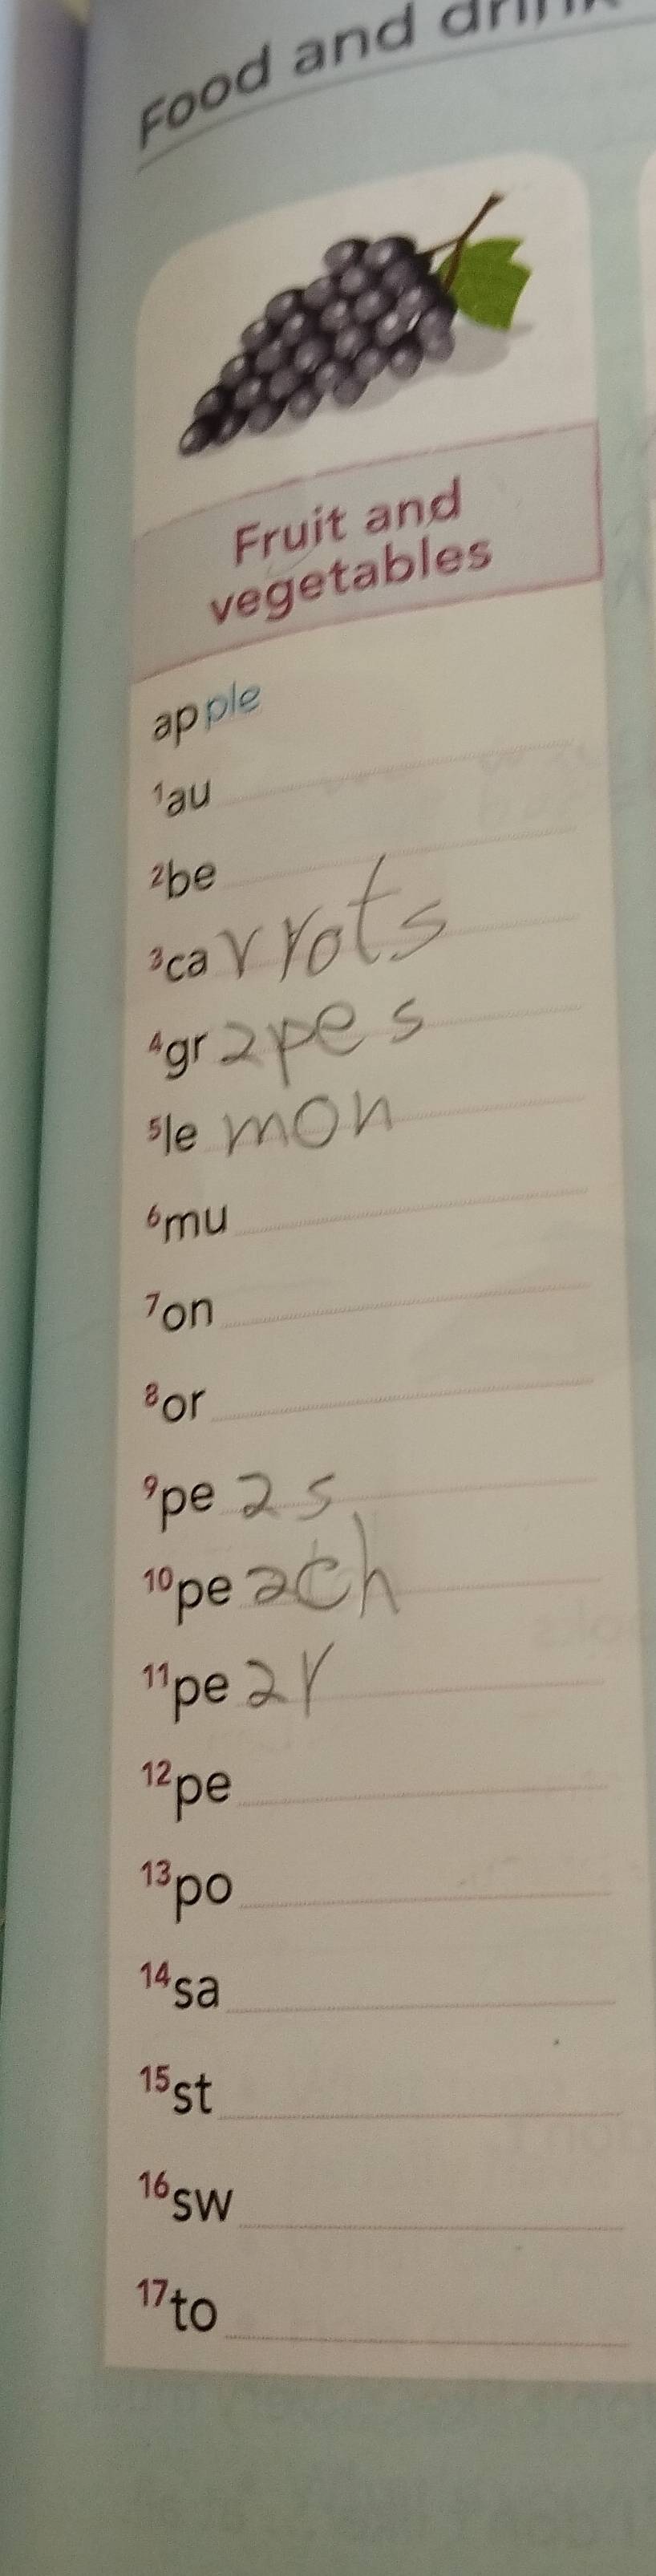 Food and drink
Fruit and
vegetables
apple
1au
2be
3carrots
4grapes
5lemon
6mu
7on
8or
9peas
10peach
11pear
12pe
13po
14sa
15st
16sw
17to